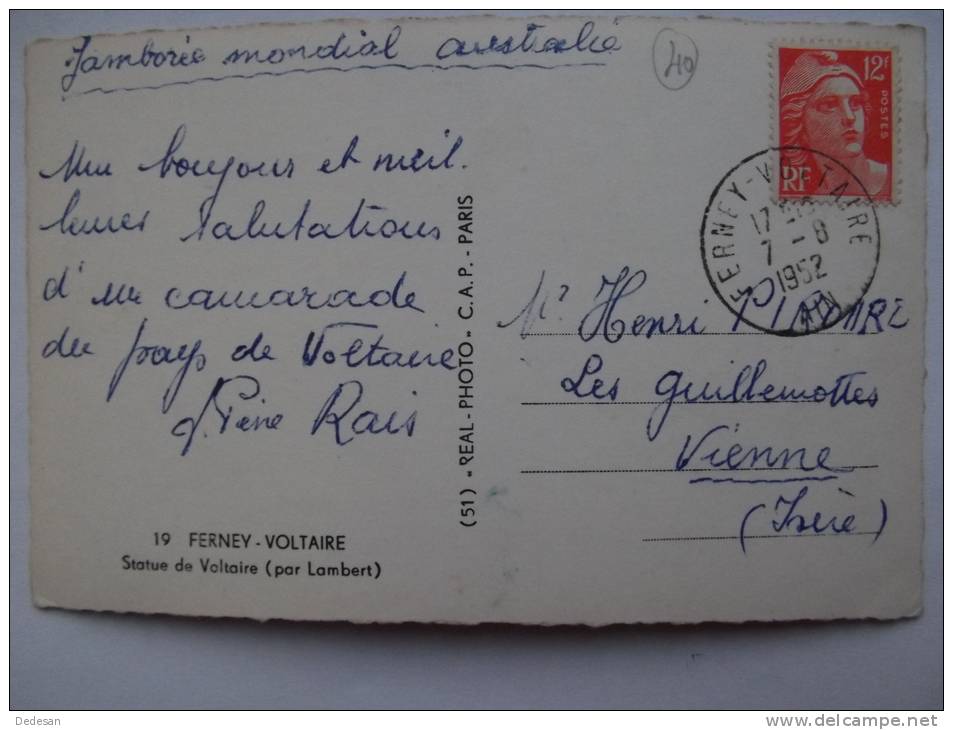 Jamborée mondial australie
40
12F
POSTES
RF
FERNEY-VOLTAIRE
17
7 - 8
1952
AIN
Un boujour et meil-
leures salutations
d'un camarade
du pays de Voltaire
Rais
Mr Henri
Les Guillemottes
Vienne
(Isère)
(51) "REAL-PHOTO" C.A.P. - PARIS
19 FERNEY-VOLTAIRE
Statue de Voltaire (par Lambert)
Dedesan
www.delcampe.net